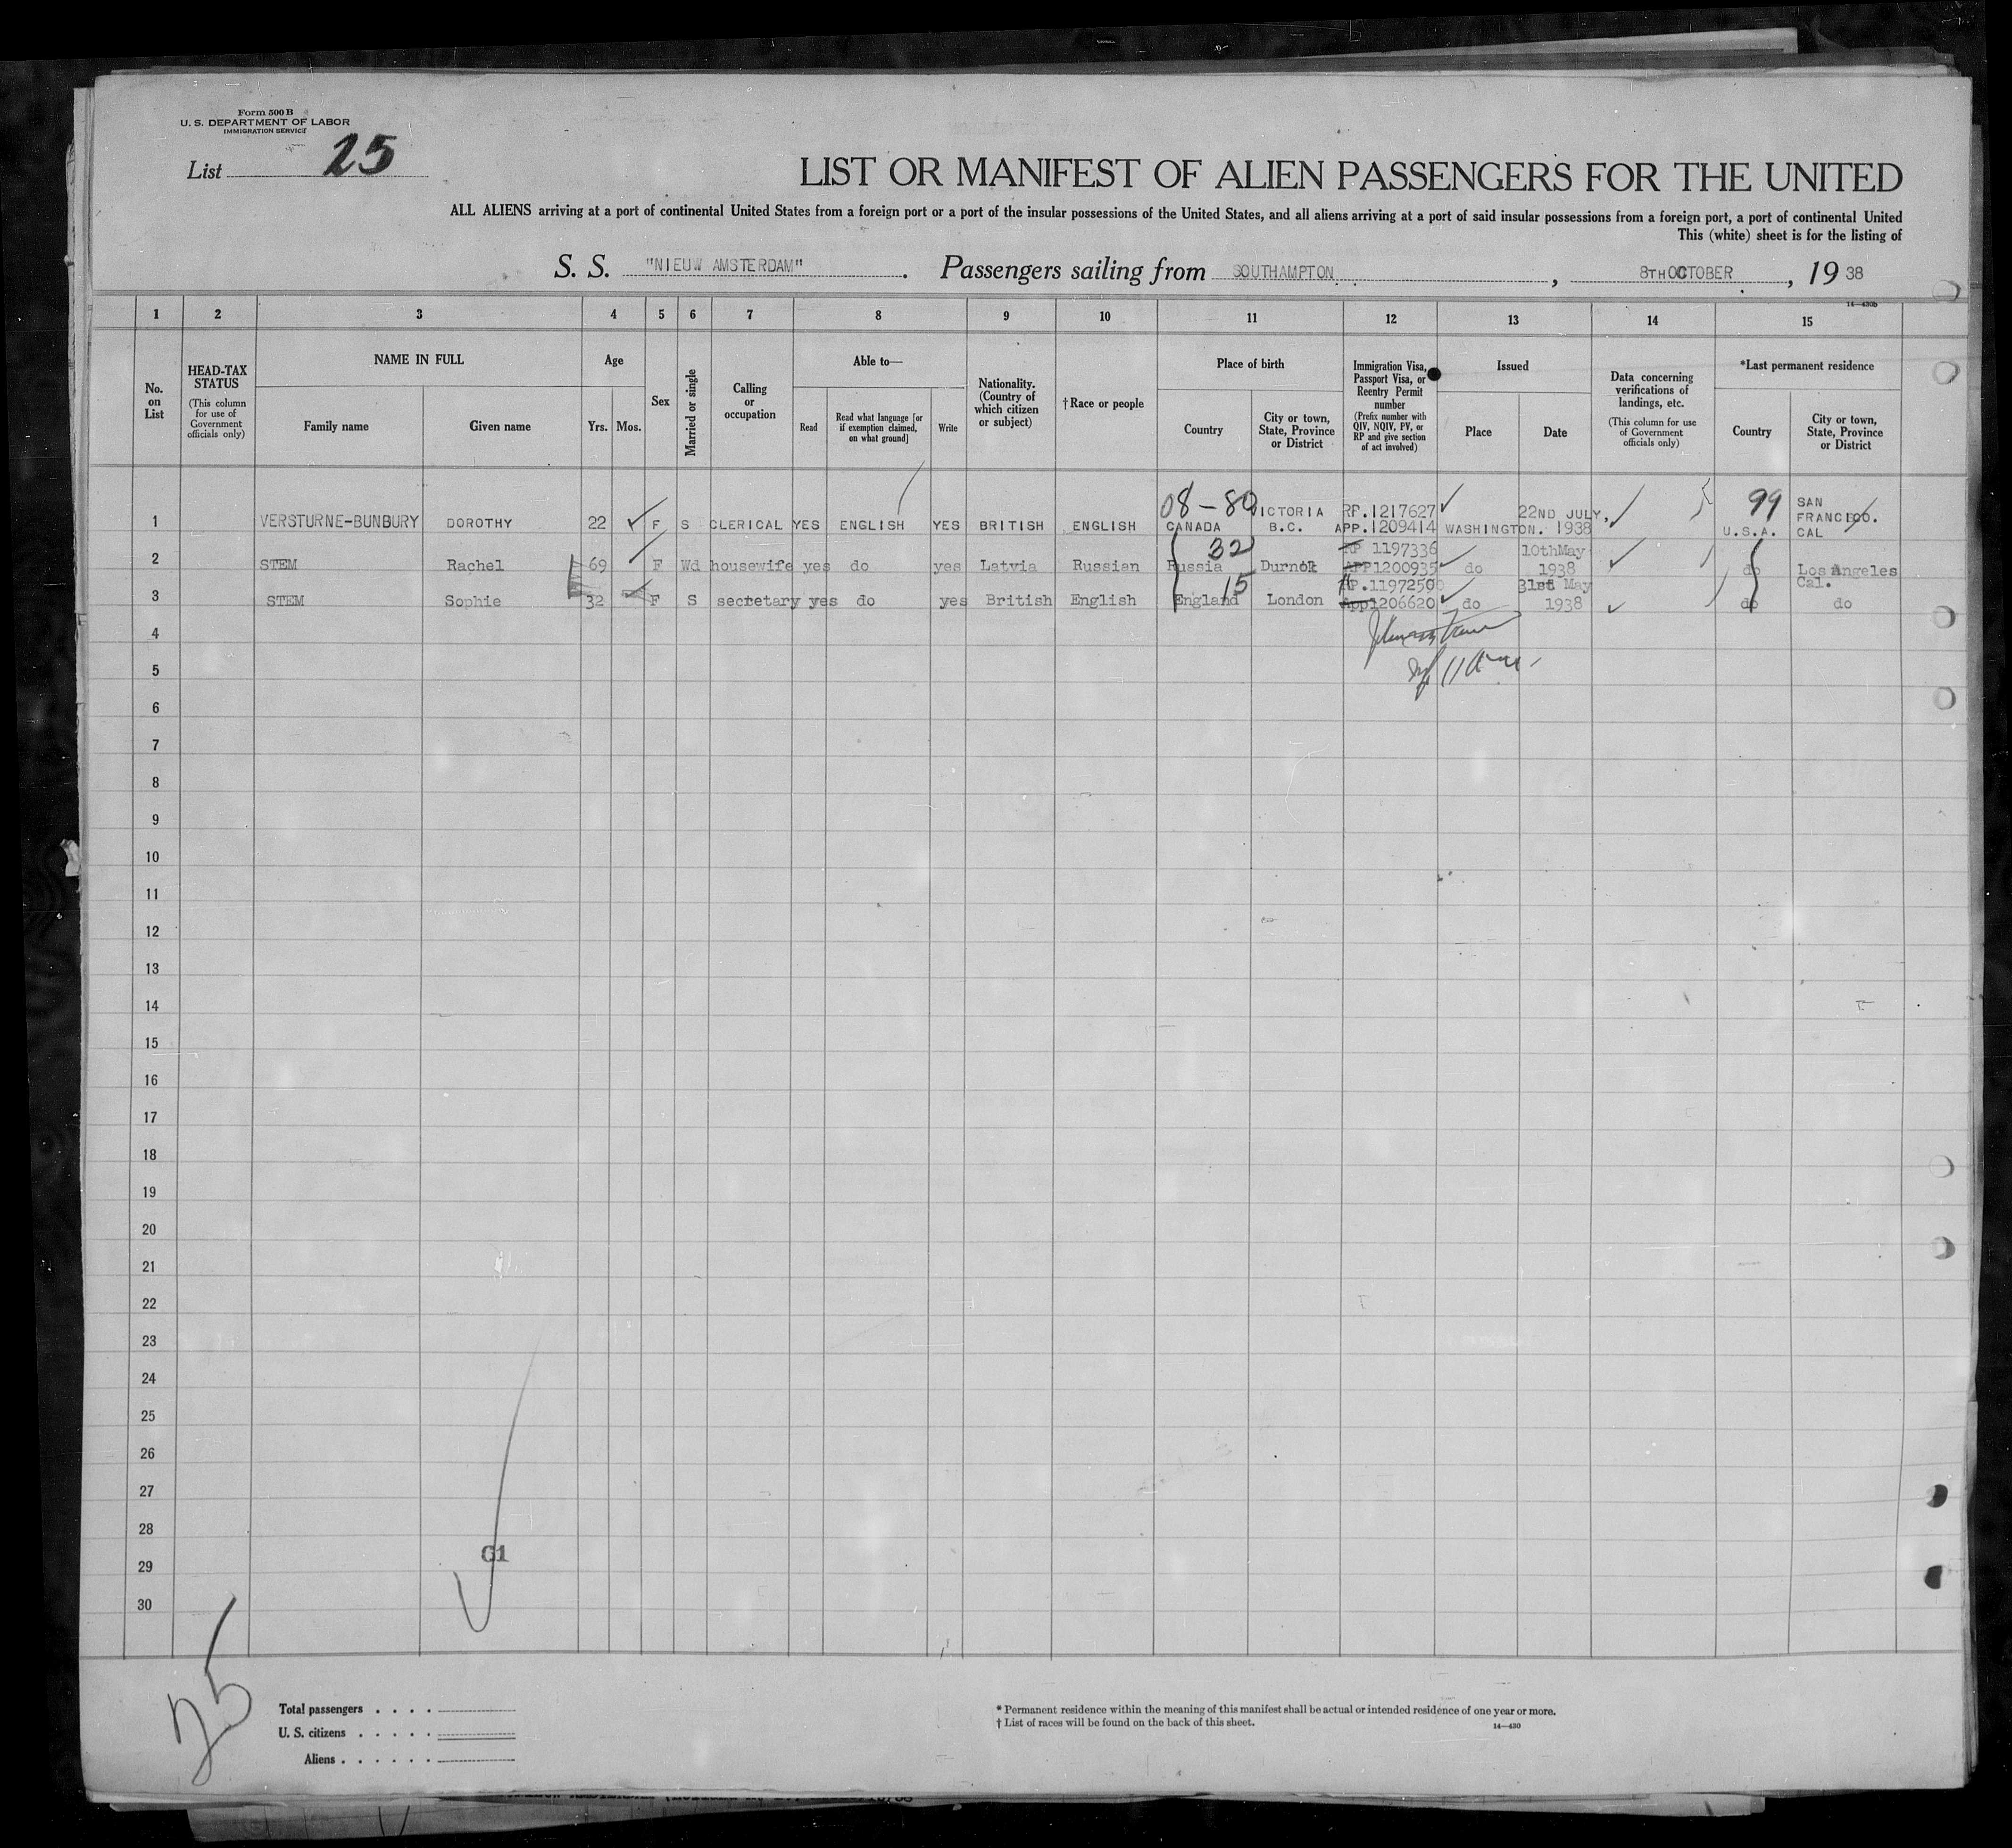 Form 500 B
U. S. DEPARTMENT OF LABOR
IMMIGRATION SERVICE
List 25
LIST OR MANIFEST OF ALIEN PASSENGERS FOR THE UNITED
ALL ALIENS arriving at a port of continental United States from a foreign port or a port of the insular possessions of the United States, and all aliens arriving at a port of said insular possessions from a foreign port, a port of continental United
This (white) sheet is for the listing of
S. S. "NIEUW AMSTERDAM". Passengers sailing from SOUTHAMPTON, 8TH OCTOBER, 19 38
14—430b
1 2 3 4 5 6 7 8 9 10 11 12 13 14 15
No. on List
HEAD-TAX STATUS
(This column for use of Government officials only)
NAME IN FULL
Family name Given name
Age
Yrs. Mos.
Sex
Married or single
Calling or occupation
Able to—
Read
Read what language [or if exemption claimed, on what ground]
Write
Nationality. (Country of which citizen or subject)
†Race or people
Place of birth
Country
City or town, State, Province or District
Immigration Visa, Passport Visa, or Reentry Permit number
(Prefix number with QIV, NQIV, PV, or RP and give section of act involved)
Issued
Place Date
Data concerning verifications of landings, etc.
(This column for use of Government officials only)
*Last permanent residence
Country
City or town, State, Province or District
08-80 VICTORIA RP.1217627 22ND JULY, 99 SAN
1 VERSTURNE-BUNBURY DOROTHY 22 F S CLERICAL YES ENGLISH YES BRITISH ENGLISH CANADA B.C. APP.1209414 WASHINGTON. 1938 U.S.A. FRANCISCO. CAL
32 RP 1197336 10thMay
2 STEM Rachel 69 F Wd housewife yes do yes Latvia Russian Russia Durnok APP1200935 do 1938 do Los Angeles Cal.
15 RP.1197250 31st May
3 STEM Sophie 32 F S secretary yes do yes British English England London App1206620 do 1938 do do
4
5
6
7
8
9
10
11
12
13
14
15
16
17
18
19
20
21
22
23
24
25
26
27
28
G1
29
30
25
Total passengers
U. S. citizens
Aliens
* Permanent residence within the meaning of this manifest shall be actual or intended residence of one year or more.
† List of races will be found on the back of this sheet.
14—430